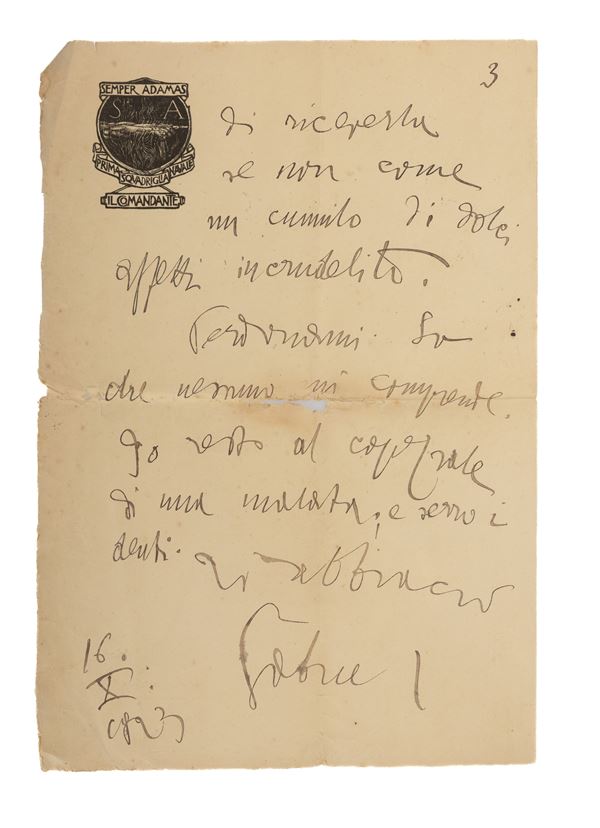 3
SEMPER ADAMAS
S A
PRIMA SQUADRIGLIA NAVALE
IL COMANDANTE
di
se non come
un cumulo di dolci
affetti incrudelito.
Perdonami. So
che nessuno mi comprende.
Io resto al capezzale
di una malata; e serro i
denti. Ti abbraccio
Gabriel
16.
X.
1923